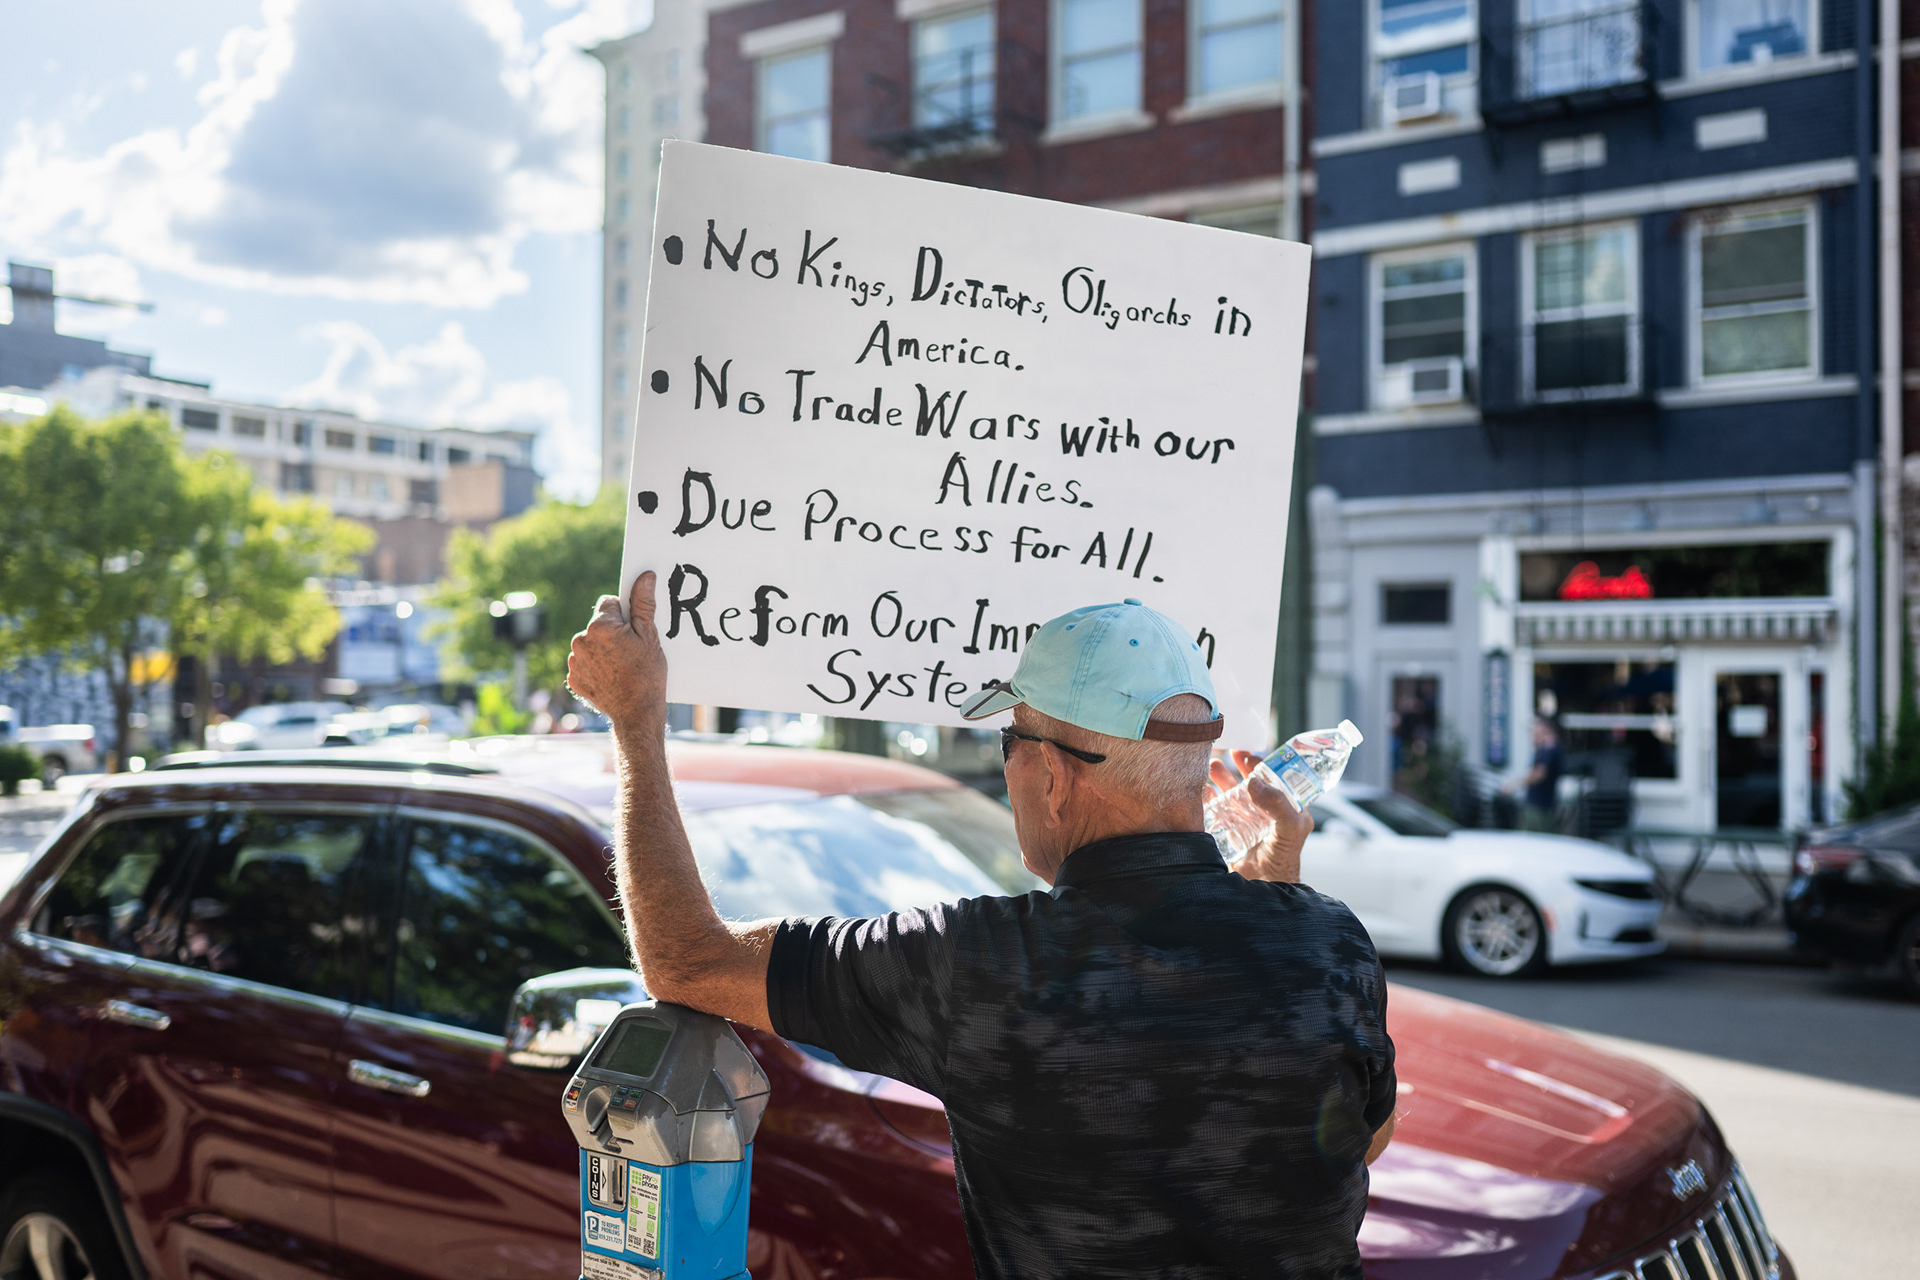 • No Kings, Dictators, Oligarchs in
America.
• No Trade Wars with our
Allies.
• Due Process for All.
Reform Our
COINS
Jeep